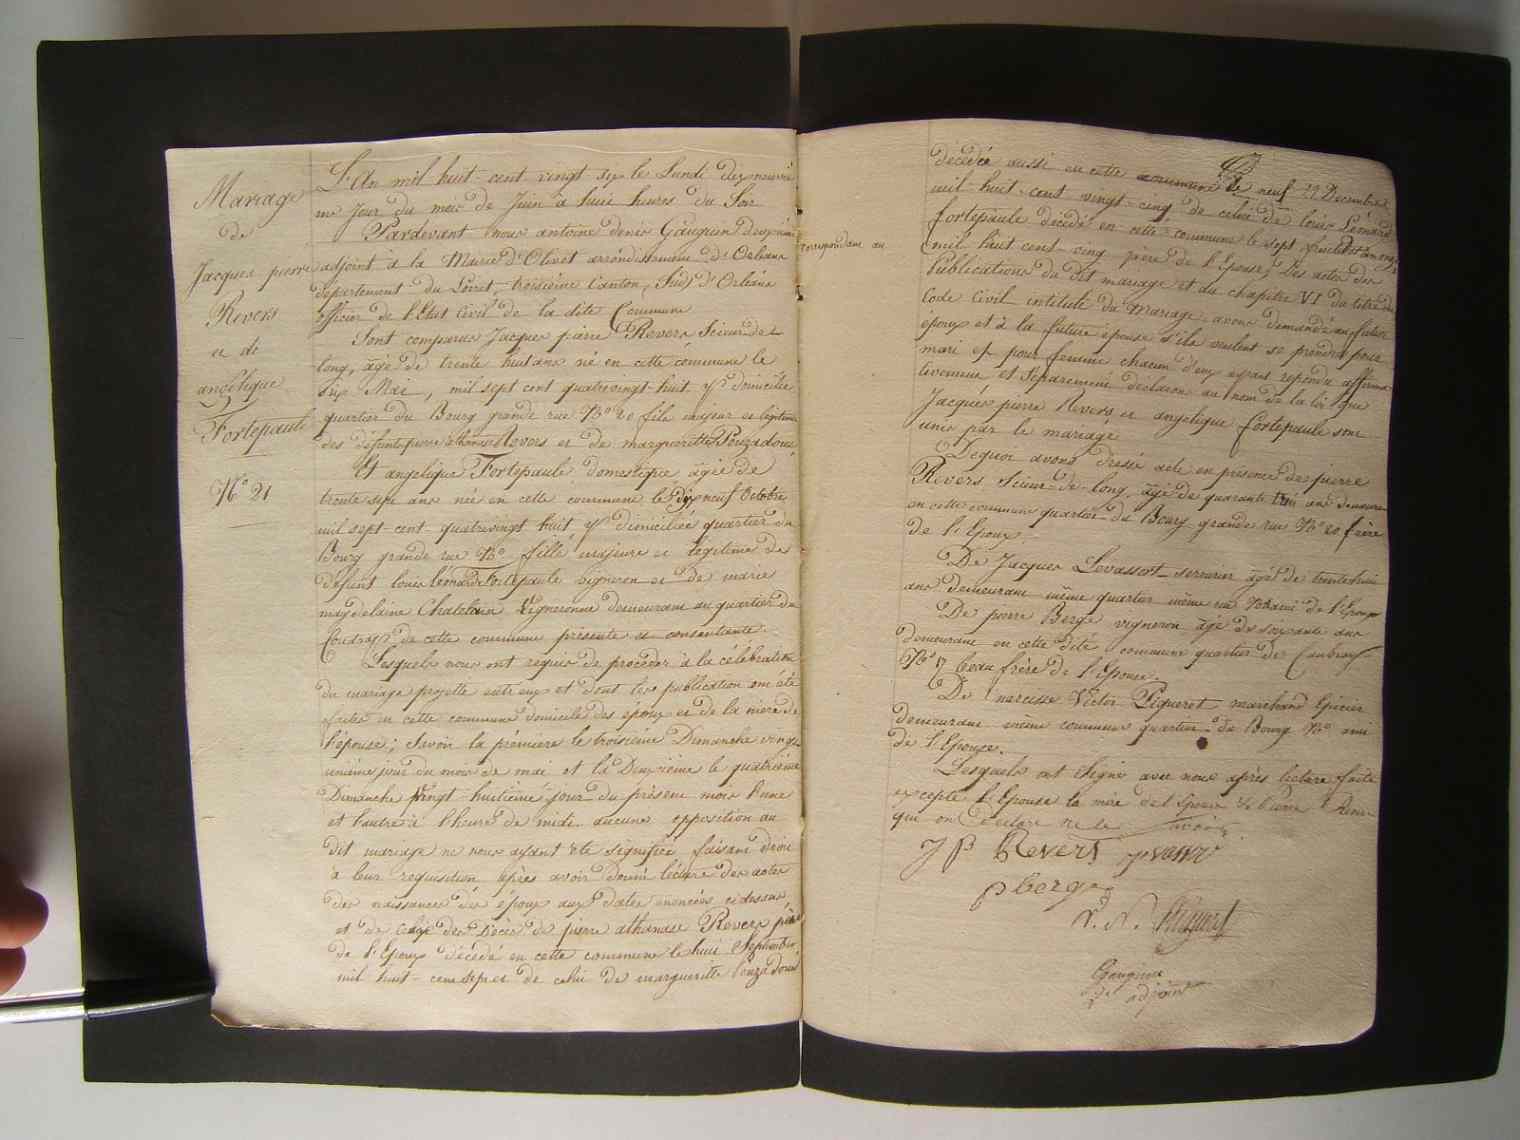 Mariage
de
Jacques pierre
Revers
et de
angélique
Fortepaule
N.o 21
L'An mil huit-cent vingt six le Lundi dix neuviè
me Jour du mois de Juin à huit heures du Soir
Pardevant nous antoine denis Gaugrain deuxième
adjoint à la Mairie d'Olivet arrondissement d'Orléans
département du Loiret, troisième Canton, Sud, d'Orléans
officier de l'Etat Civil de la dite Commune
Sont comparus Jacques pierre Revers Scieur de
long, âgé de trente huit ans né en cette commune le
six Mai, mil sept cent quatrevingt-huit y domicilié
quartier du Bourg grande rue N.o 20 fils majeur et légitime
des défunts pierre athanase Revers et de margueritte Pouzadoux
Et angelique Fortepaule domestique âgée de
trente sept ans née en cette commune le dix neuf Octobre
mil sept cent quatrevingt huit y domiciliée quartier du
Bourg grande rue N.o fille majeure et légitime de
défunt louis léonard Fortepaule vigneron et de marie
magdelaine Chatelain Vigneronne demeurant au quartier du
Coudray de cette commune présente et consentante.
Lesquels nous ont requis de procéder à la célébration
du mariage projetté entre eux et dont les publication ont été
faites en cette commune domicile des époux et de la mère de
l'épouse; Savoir la première le troisième Dimanche vingt
unième jour du mois de mai et la Deuxième le quatrième
Dimanche Vingt-huitième jour du présent mois l'une
et l'autre à l'heure de midi. aucune opposition au
dit mariage ne nous ayant été signifiée faisant droit
à leur requisition après avoir donné lecture des actes
de naissances des époux aux dates énoncées ci dessus
et de celui des Décès de pierre athanase Revers père
de l'Epoux décédé en cette commune le huit Septembre
mil huit-cent sept et de celui de marguerite Pouzadoux
correspondant au
décédée aussi en cette commune le neuf 19 Decembre
mil-huit-cent vingt-cinq de celui de louis Léonard
fortepaule décédé en cette commune le sept
mil huit cent cinq père de l'Epouse, Des actes des
Publications du dit mariage et du chapitre VI du titre du
Code Civil intitulé du Mariage avons demandé au futur
époux et à la future épouse s'ils veulent se prendre pour
mari et pour femme chacun d'eux ayant répondu affirma
tivement et Séparément déclarons au nom de la loi que
Jacques pierre Revers et angelique fortepaule sont
unis par le mariage
Dequoi avons dressé acte en présence de pierre
Revers Scieur-de-long, âgé de quarante trois ans demeurant
en cette commune quartier du Bourg grande rue N.o 20 frère
de l'Epoux.
De Jacques Levassort serrurier âgé de trente huit
ans demeurant même quartier même rue N.o ami de l'Epoux
De pierre Bergé vigneron âgé de soixante ans
demeurant en cette dite commune quartier de Caubray
N.o 7 beau frère de l'Epouse.
De narcisse Victor Piqueret marchand épicier
demeurant même commune quartier du Bourg N.o ami
de l'Epouse.
Lesquels ont Signé avec nous après lecture faite
excepté l'Epouse la mère de l'Epouse et pierre Revers
qui ont déclaré ne le Savoir.
J P Revers
p berge
Gaugrain
adjoint